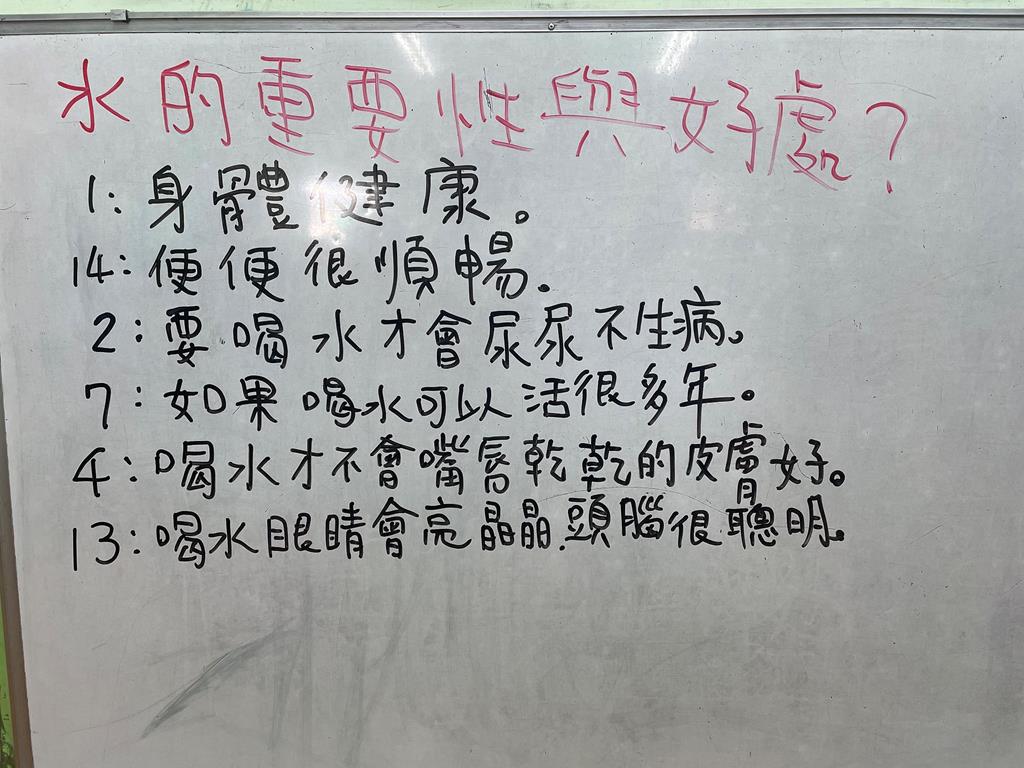 水的重要性與好處?
1:身體健康。
14:便便很順暢.
2:要喝水才會尿尿不生病。
7:如果喝水可以活很多年。
4:喝水才不會嘴唇乾乾的皮膚好。
13:喝水眼睛會亮晶晶.頭腦很聰明。